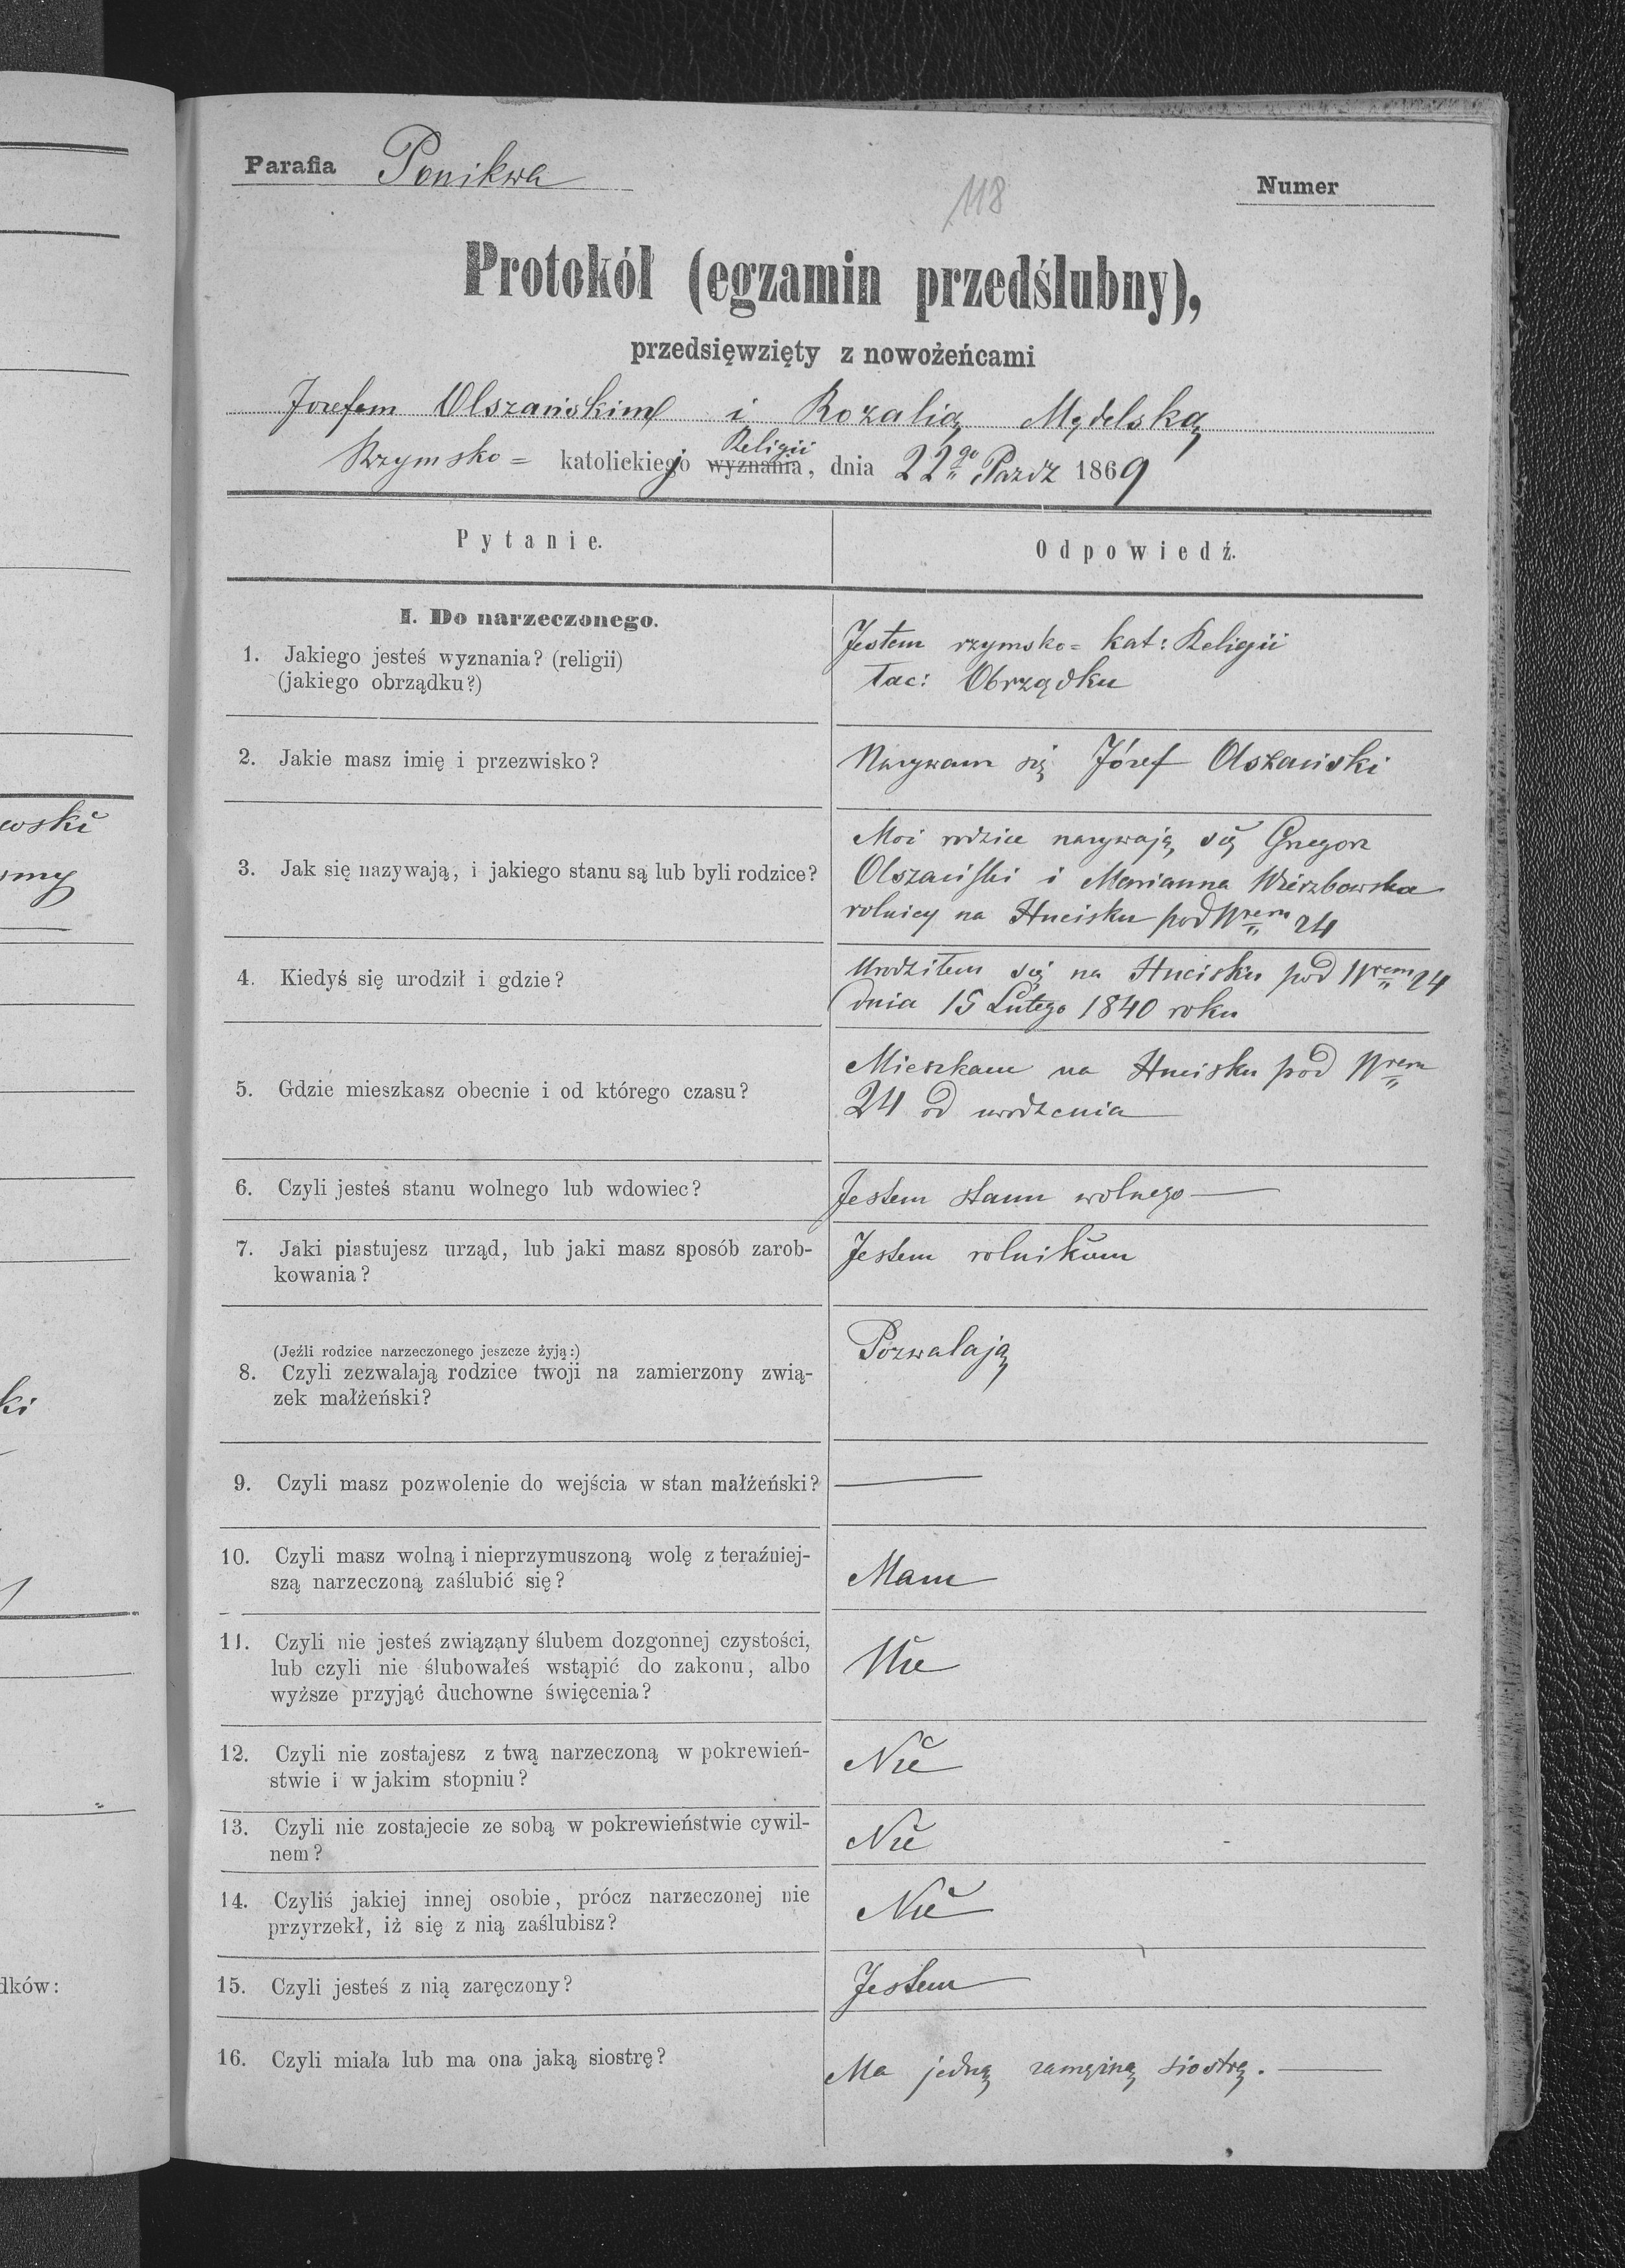 ewski
ki
dków:
Parafia Ponikwa
118
Numer
Protokół (egzamin przedślubny),
przedsięwzięty z nowożeńcami
Jozefem Olszańskim i Rozalią Mędelską
Religii
Rzymsko = katolickiego wyznania, dnia 22go Pazdz 1869
Pytanie.
Odpowiedź.
I. Do narzeczonego.
1. Jakiego jesteś wyznania? (religii)
(jakiego obrządku?)
Jestem rzymsko = kat: Religii
łac: Obrządku
2. Jakie masz imię i przezwisko?
Nazywam się Józef Olszański
3. Jak się nazywają, i jakiego stanu są lub byli rodzice?
Moi rodzice nazywają się Grzegorz
Olszański i Marianna Wierzbowska
rolnicy na Hucisku pod Nrem 24
4. Kiedyś się urodził i gdzie?
Urodziłem się na Hucisku pod Nrem 24
dnia 15 Lutego 1840 roku
5. Gdzie mieszkasz obecnie i od którego czasu?
Mieszkam na Hucisku pod Nrem
24 od urodzenia
6. Czyli jesteś stanu wolnego lub wdowiec?
Jestem stanu wolnego
7. Jaki piastujesz urząd, lub jaki masz sposób zarob-
kowania?
Jestem rolnikem
(Jeźli rodzice narzeczonego jeszcze żyją:)
8. Czyli zezwalają rodzice twoji na zamierzony zwią-
zek małżeński?
Pozwalają
9. Czyli masz pozwolenie do wejścia w stan małżeński?
10. Czyli masz wolną i nieprzymuszoną wolę z teraźniej-
szą narzeczoną zaślubić się?
Mam
11. Czyli nie jesteś związany ślubem dozgonnej czystości,
lub czyli nie ślubowałeś wstąpić do zakonu, albo
wyższe przyjąć duchowne święcenia?
Nie
12. Czyli nie zostajesz z twą narzeczoną w pokrewień-
stwie i w jakim stopniu?
Nie
13. Czyli nie zostajecie ze sobą w pokrewieństwie cywil-
nem?
Nie
14. Czyliś jakiej innej osobie, prócz narzeczonej nie
przyrzekł, iż się z nią zaślubisz?
Nie
15. Czyli jesteś z nią zaręczony?
Jestem
16. Czyli miała lub ma ona jaką siostrę?
Ma jedną zamęzną siostrę.